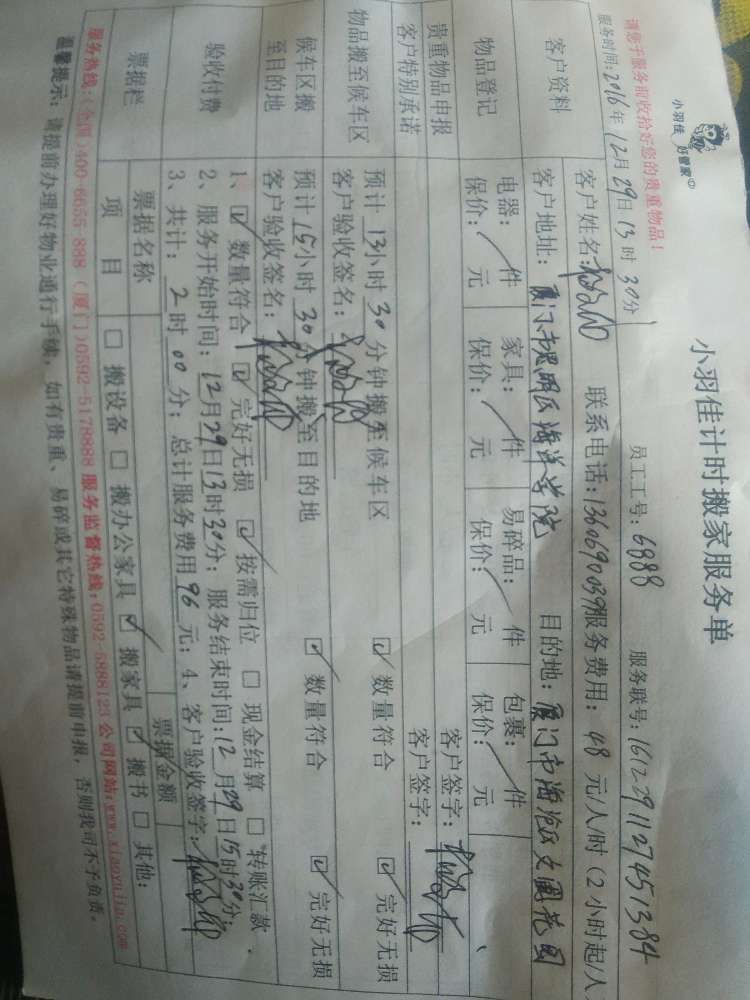 小羽佳 好管家
小羽佳计时搬家服务单
请您于服务前收拾好您的贵重物品!
员工工号:6988 服务联号:16122911274513 84
服务时间:2016年12月29日13时30分
客户资料
客户姓名: 联系电话:13606900397 服务费用:48元/人/时(2小时起/人
客户地址:厦门市思明区海洋学院 目的地:厦门市海沧区文圃花园
物品登记
电器:/件 家具:/件 易碎品:/件 包裹:/件
保价:/元 保价:/元 保价:/元 保价:/元
贵重物品申报 客户签字:
客户特别承诺 客户签字:
物品搬至候车区
预计13小时30分钟搬至候车区 ☑数量符合 ☑完好无损
客户验收签名:
候车区搬至目的地
预计15小时30分钟搬至目的地 ☑数量符合 ☑完好无损
客户验收签名:
验收付费
1、☑数量符合 ☑完好无损 ☑按需归位 □现金结算 □转账汇款
2、服务开始时间:12月29日13时30分;服务结束时间:12月29日15时30分;
3、共计:2时00分;总计服务费用96元;4、客户验收签字:
票据栏 票据名称 票据金额
项目 □搬设备 □搬办公家具 ☑搬家具 ☑搬书 □其他:
服务热线:(全国)400-6655-888 (厦门)0592-5178888 服务监督热线:0592-5888123 公司网站:www.xiaoyujia.com
温馨提示:请提前办理好物业通行手续,如有贵重、易碎或其它特殊物品请提前申报,否则我司不予负责。